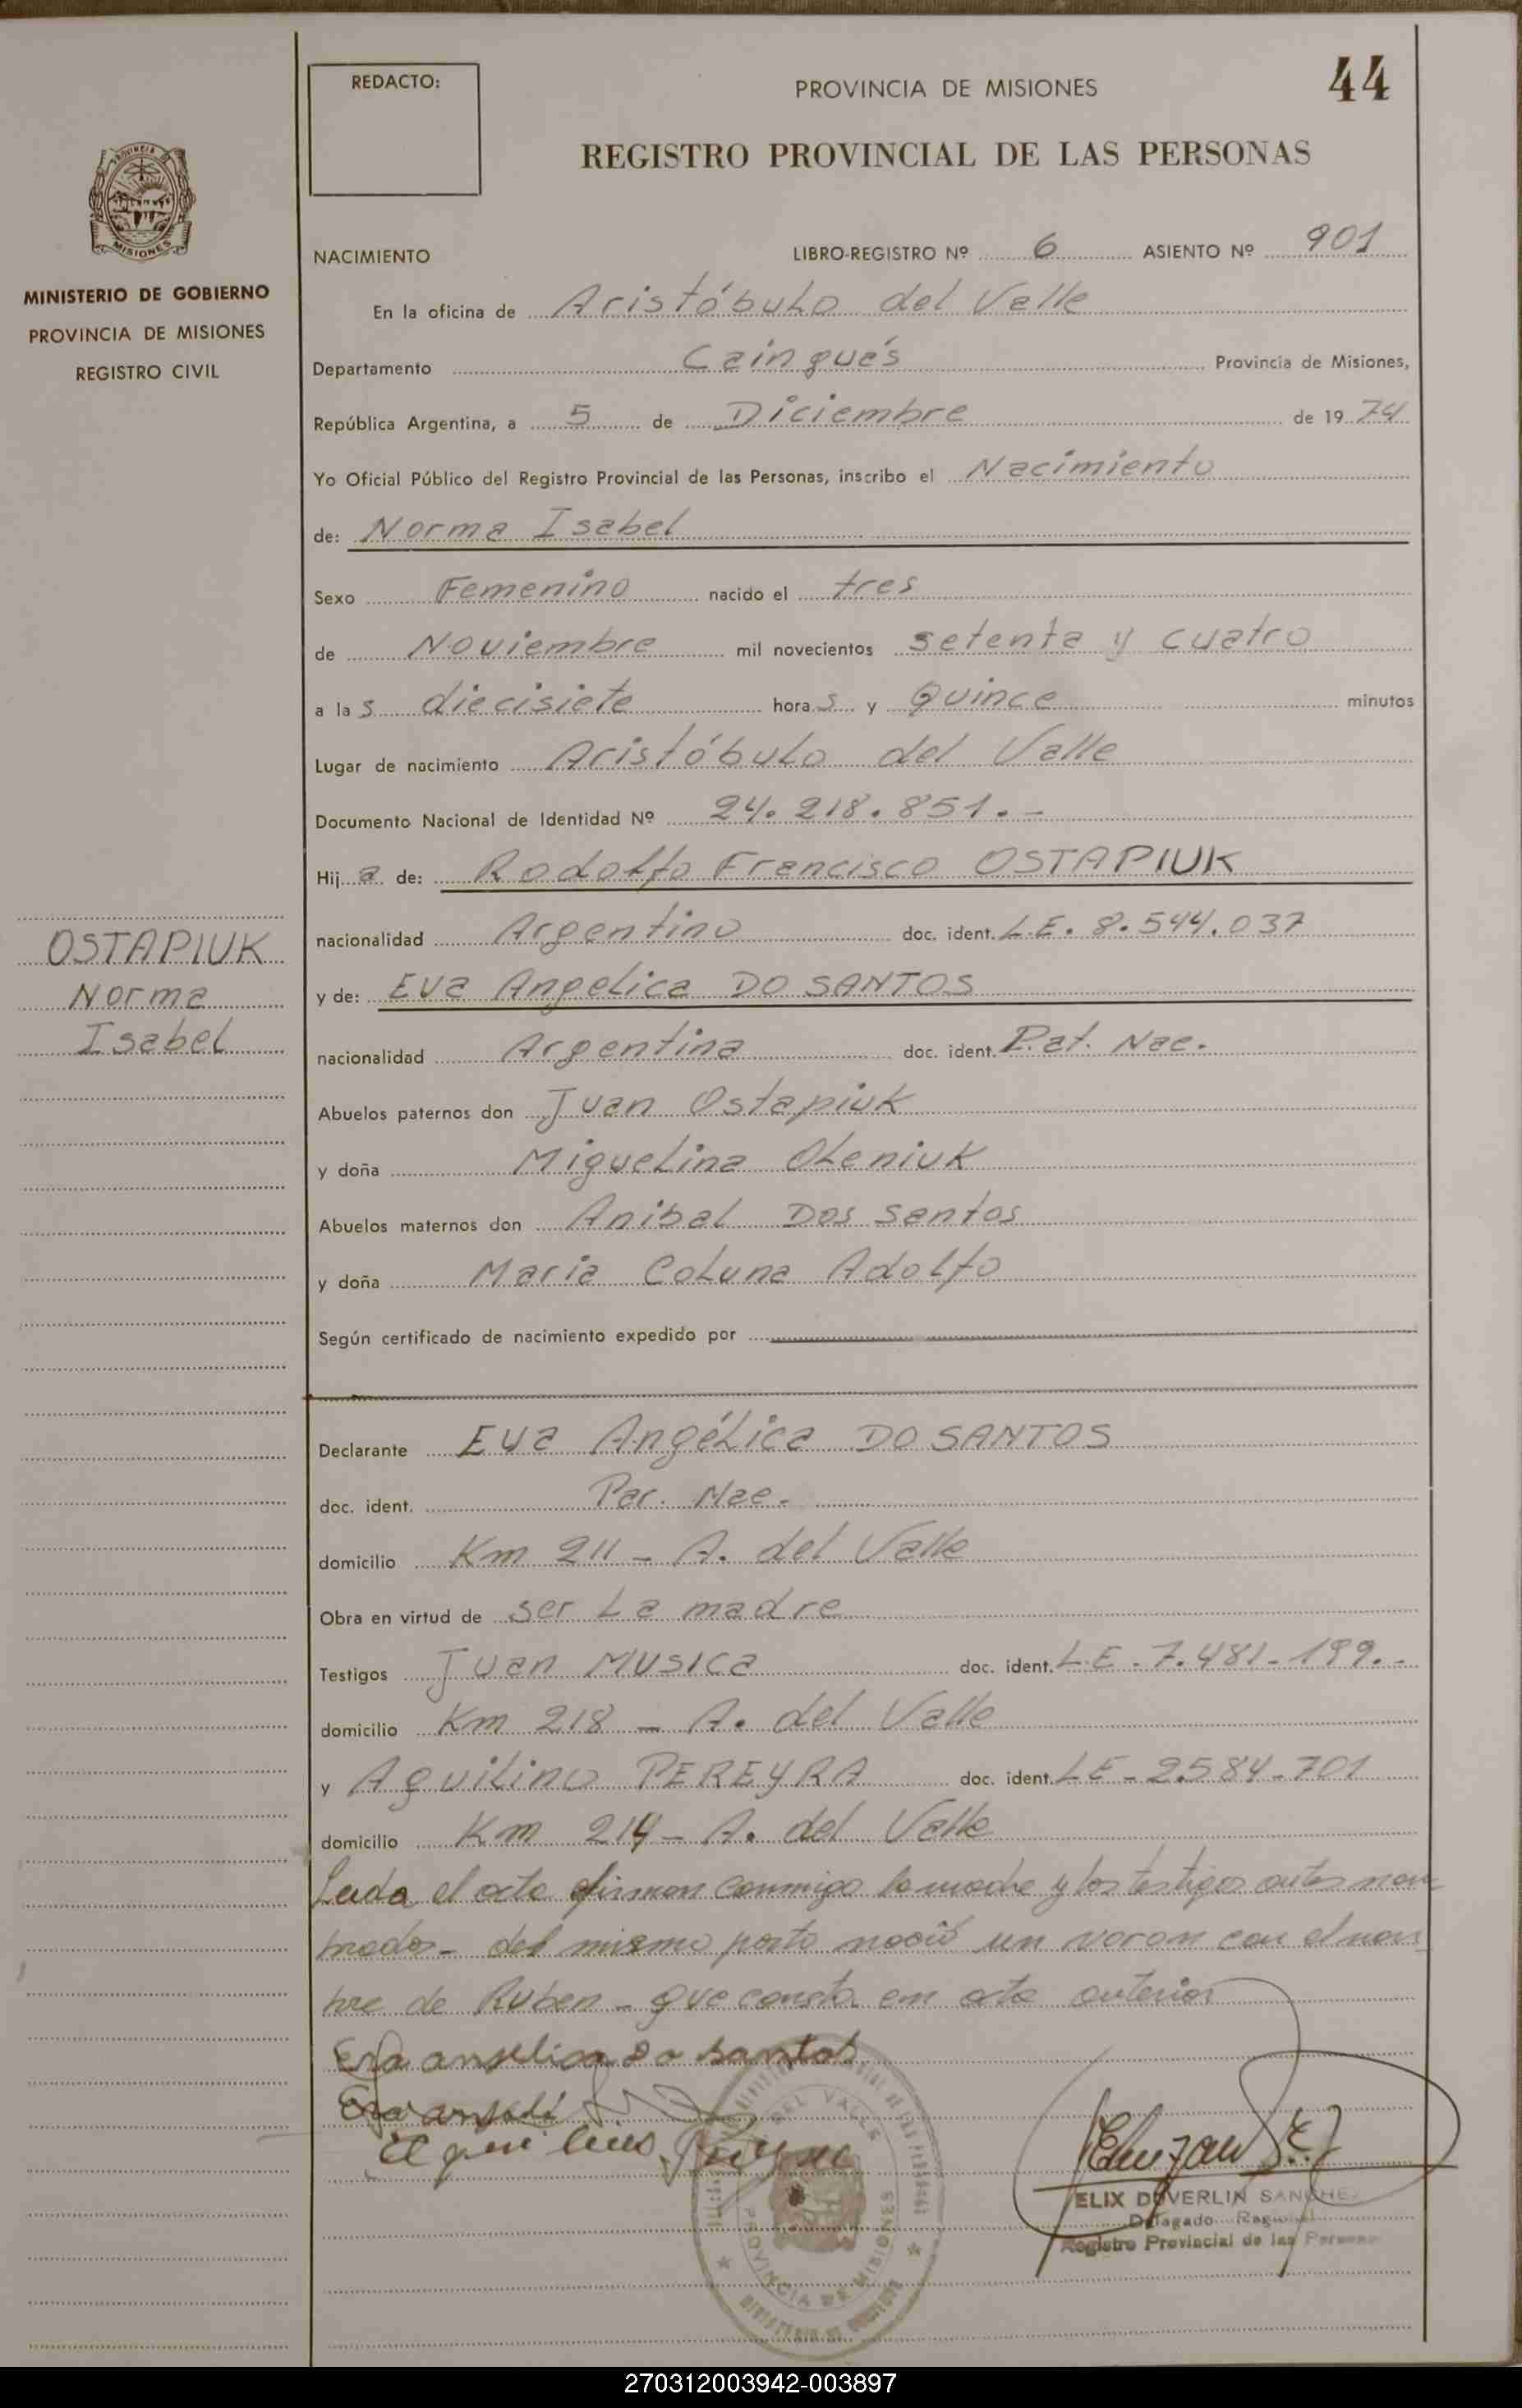 44
REDACTO:
PROVINCIA DE MISIONES
REGISTRO PROVINCIAL DE LAS PERSONAS
MISIONES
MINISTERIO DE GOBIERNO
PROVINCIA DE MISIONES
REGISTRO CIVIL
NACIMIENTO LIBRO-REGISTRO Nº 6 ASIENTO Nº 901
En la oficina de Aristóbulo del Valle
Departamento Cainguás Provincia de Misiones,
República Argentina, a 5 de Diciembre de 1974
Yo Oficial Público del Registro Provincial de las Personas, inscribo el Nacimiento
de: Norma Isabel
Sexo Femenino nacido el tres
de Noviembre mil novecientos setenta y cuatro
a las diecisiete horas y Quince minutos
Lugar de nacimiento Aristóbulo del Valle
Documento Nacional de Identidad Nº 24.218.851.-
Hija de: Rodolfo Francisco OSTAPIUK
nacionalidad Argentino doc. ident. L.E. 8.544.037
y de: Eva Angelica DO SANTOS
nacionalidad Argentina doc. ident.
Abuelos paternos don Juan Ostapiuk
y doña Miguelina Oleniuk
Abuelos maternos don Anibal Dos Santos
y doña Maria Coluna Adolfo
Según certificado de nacimiento expedido por
OSTAPIUK
Norma
Isabel
Declarante Eva Angélica DO SANTOS
doc. ident.
domicilio Km 211 - A. del Valle
Obra en virtud de ser la madre
Testigos Juan MUSICA doc. ident. L.E. 7.481.199.-
domicilio Km 218 - A. del Valle
y Aquilino PEREYRA doc. ident. LE - 2.584.701
domicilio Km 214 - A. del Valle
Leida el acta firman conmigo la madre y los testigos antes nom
brados - del mismo parto nació un varon con el nom
bre de Ruben - que consta en acta anterior
Eva anselica do santos
DEL VALLE
PROVINCIA DE MISIONES
ELIX DUVERLIN SANCHEZ
Delegado Regional
Registro Provincial de las Personas
270312003942-003897